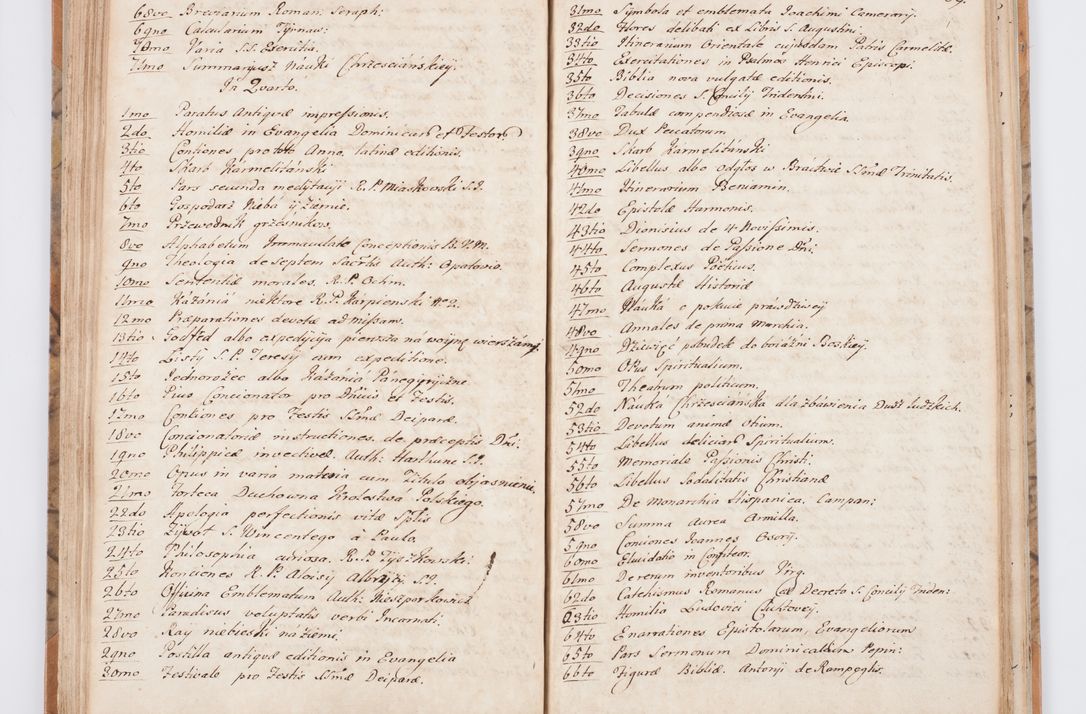 68vo Breviarium Roman: Seraph:
69no Calcularium Tyrnav:
70mo Varia S.S. Exercitia.
71mo Summaryusz Nauki Chrzescianskiey.
In Quarto.
1mo Paratus Antiquæ impressionis.
2do Homiliæ in Evangelia Dominicar: et Festor:
3tio Contiones pro toto Anno, latinæ editionis.
4to Skarb Karmelitánski
5to Pars secunda medytacyi R.P. Miaskowski S.J.
6to Gospodarz Nieba y ziemie.
7mo Przewodnik grzésnikow.
8vo Alphabetum Immaculatæ Conceptionis B.V.M.
9no Theologia de septem Sacrtis Auth: Opatovio.
10mo Sententiæ morales. R.P. Ochm.
11mo Kázánia niektore R.P. Karpienski No 2.
12mo Præparationes devotæ ad missam.
13tio Godfed albo expedycyia pierwsza ná woynę wierszámi.
14to Listy S.P. Teresy cum expeditione.
15to Jednorożec albo Kázánia Pánegyryczne.
16to Pius Concionator pro Dnicis et Festis.
17mo Contiones pro Festis Bmæ Deiparæ.
18vo Concionatoriæ instructiones, de præceptis Dni:
19no Philippicæ invectivæ. Auth: Hasthune S.J.
20mo Opus in varia materia cum Titulo objasnienie.
21mo Forteca Duchowna Krolestwa Polskiego.
22do Apologia perfectionis vitæ Splis
23tio Zywot S. Wincentego à Paulo.
24to Philosophia curiosa. R.P. Tyszkowski:
25to Kontiones R.P. Aloisy Albryzi S.J.
26to Officina Emblematum Auth: Kaszporkowicz
27mo Paradisus voluptatis verbi Incarnati.
28vo Ray niebieski na ziemi.
29no Postilla antiquæ editionis in Evangelia
30mo Festivale pro Festis Bmæ Deiparæ.
31mo Symbola et emblemata Joachimi Camerary.
32do Flores delibati ex Libris S. Augustini.
33tio Itinerarium Orientale cujusdam Patris Carmelitæ.
34to Exercitationes in Psalmos Henrici Episcopi.
35to Biblia nova vulgatæ editionis.
36to Decisiones S. Concilij Tridentini.
37mo Tabulæ compendiosæ in Evangelia
38vo Dux Peccatorum
39no Skarb Karmelitánski
40mo Libellus albo odgłos w Bractwie SSmæ Trinitatis.
41mo Itinerarium Beniamin.
42do Epistolæ Harmonis.
43tio Dionisius de 4 Novissimis.
44to Sermones de Passione Dni:
45to Complexus Pöeticus.
46to Augustæ Historiæ
47mo Nauka o pokucie prawdziwey
48vo Annales de prima Monchia.
49no Dziewięć pobudek do boiaźni Boskiey.
50mo Opus Spiritualium.
51mo Theatrum politicum.
52do Náuká Chrzescianska dla zbawienia Dusz ludzkich.
53tio Devotum animæ otium.
54to Libellus deliciar: Spiritualium.
55to Memoriale Passionis Christi:
56to Libellus Sodalitatis Christianæ
57mo De Monarchia Hispanica. Campan:
58vo Summa Aurea Armilla.
59no Conciones Joannes Osorij.
60mo Elucidatio in Confiteor.
61mo De rerum inventoribus Virg.
62do Catechismus Romanus ex Decreto S. Concilij Triden:
63tio Homilia Ludovici
64to Enarrationes Epistolarum, Evangeliorum
65to Pars Sermonum Dominicalium Pepin:
66to Figuræ Bibliæ. Antonij de Rampeglis.